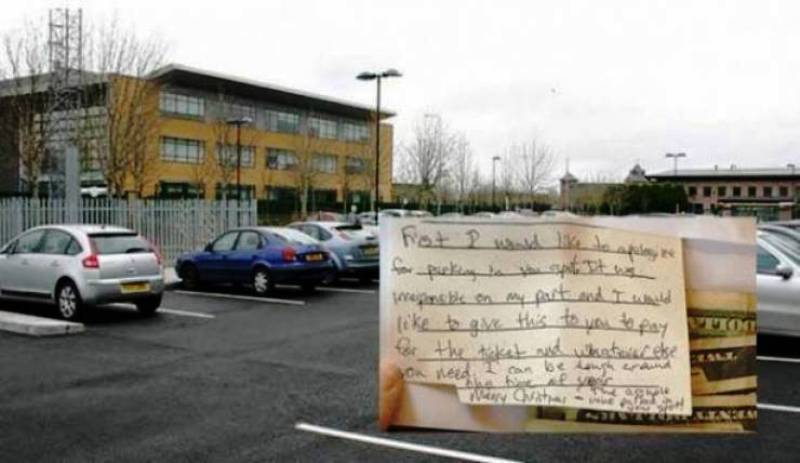 First I would like to apologize
for parking in you spot. It was
irresponsible on my part and I would
like to give this to you to pay
for the ticket and whatever else
you need. I can be tough around
this time of year
Merry Christmas - The asshole
who parked in
your spot!